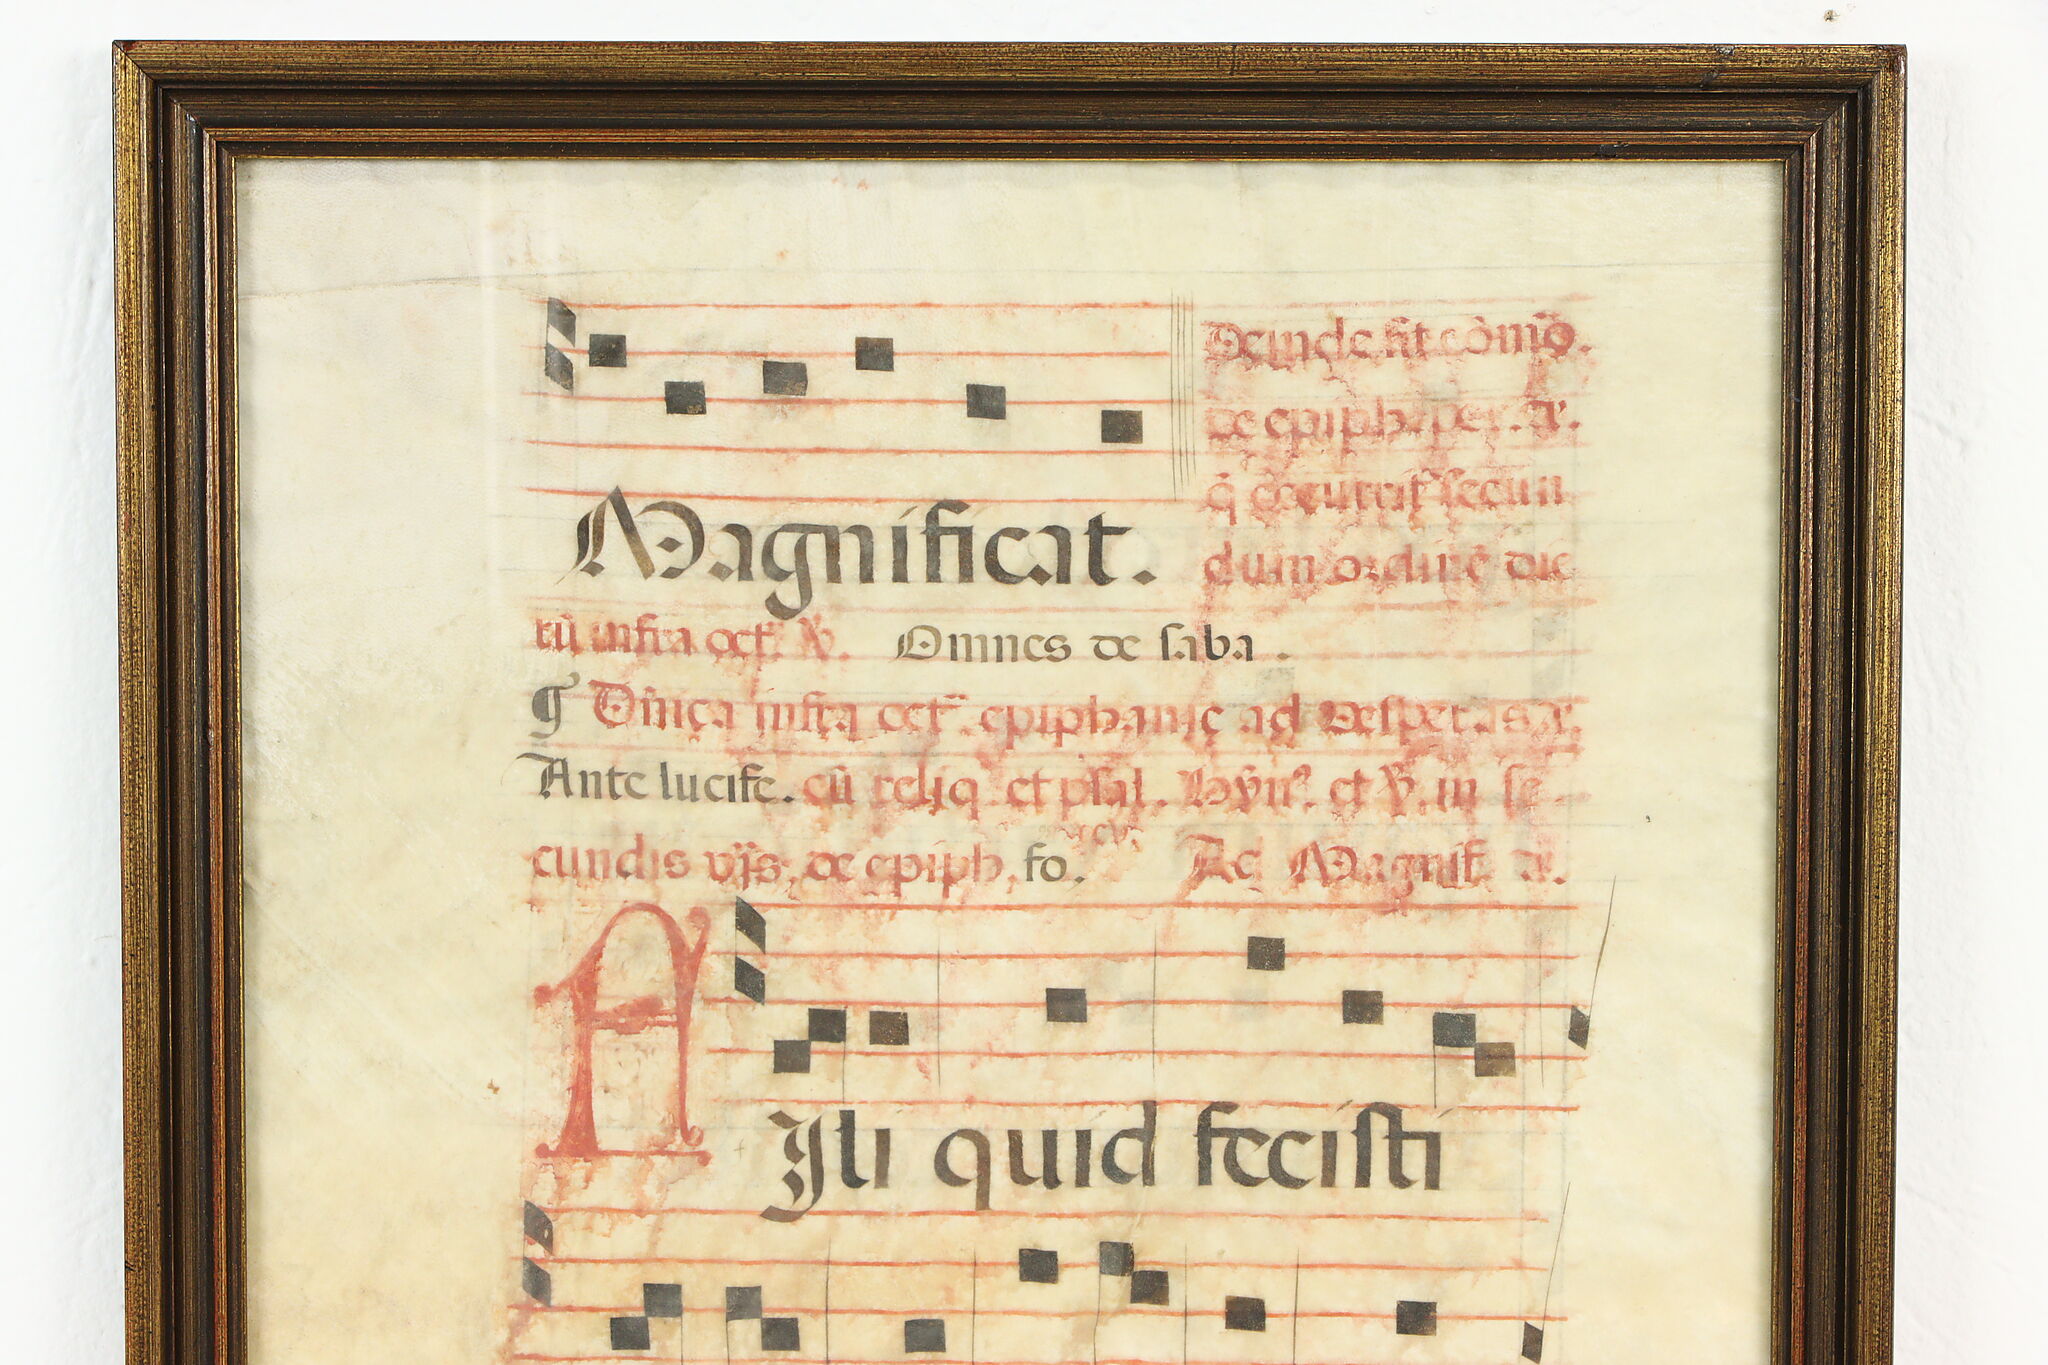 Deinde fit cōm̄o.
de epiph. per. a͂.
Magnificat.
q̄ secun
dum ordinē dic
tū infra oct. V̄.
Omnes de saba.
Dn̄ica infra oct. epiphanie ad vesperas a͂.
Ante lucife. cū reliq. et psal. hym̄. et V̄. in se
cundis vĳs. de epiph. fo. Ad Magnif. a͂.
F
Ili quid fecisti